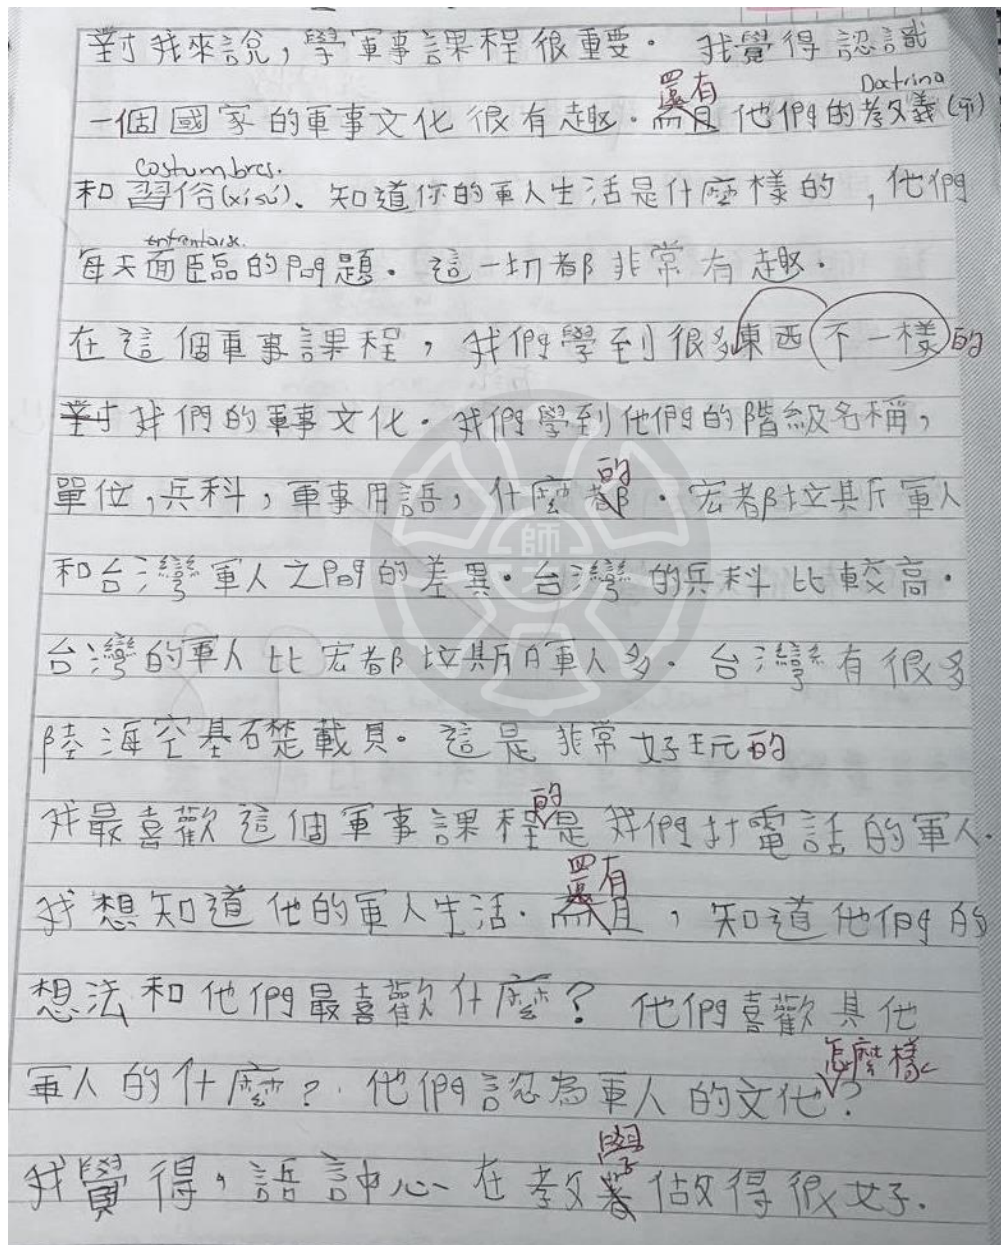 對我來說，學軍事課程很重要。我覺得認識
還有 Doctrina
一個國家的軍事文化很有趣。而且他們的教義(yì)
costumbres.
和習俗(xísú)、知道你的軍人生活是什麼樣的，他們
enfrentarse.
每天面臨的問題。這一切都非常有趣。
在這個軍事課程，我們學到很多東西不一樣的
對我們的軍事文化。我們學到他們的階級名稱，
的
單位，兵科，軍事用語，什麼都。宏都拉斯軍人
和台灣軍人之間的差異。台灣的兵科比較高。
台灣的軍人比宏都拉斯的軍人多。台灣有很多
陸海空基礎載具。這是非常好玩的
的
我最喜歡這個軍事課程是我們打電話的軍人。
還有
我想知道他的軍人生活。而且，知道他們的
想法和他們最喜歡什麼？他們喜歡其他
怎麼樣
軍人的什麼？他們認為軍人的文化？
學
我覺得，語言中心在教 做得很好.
師